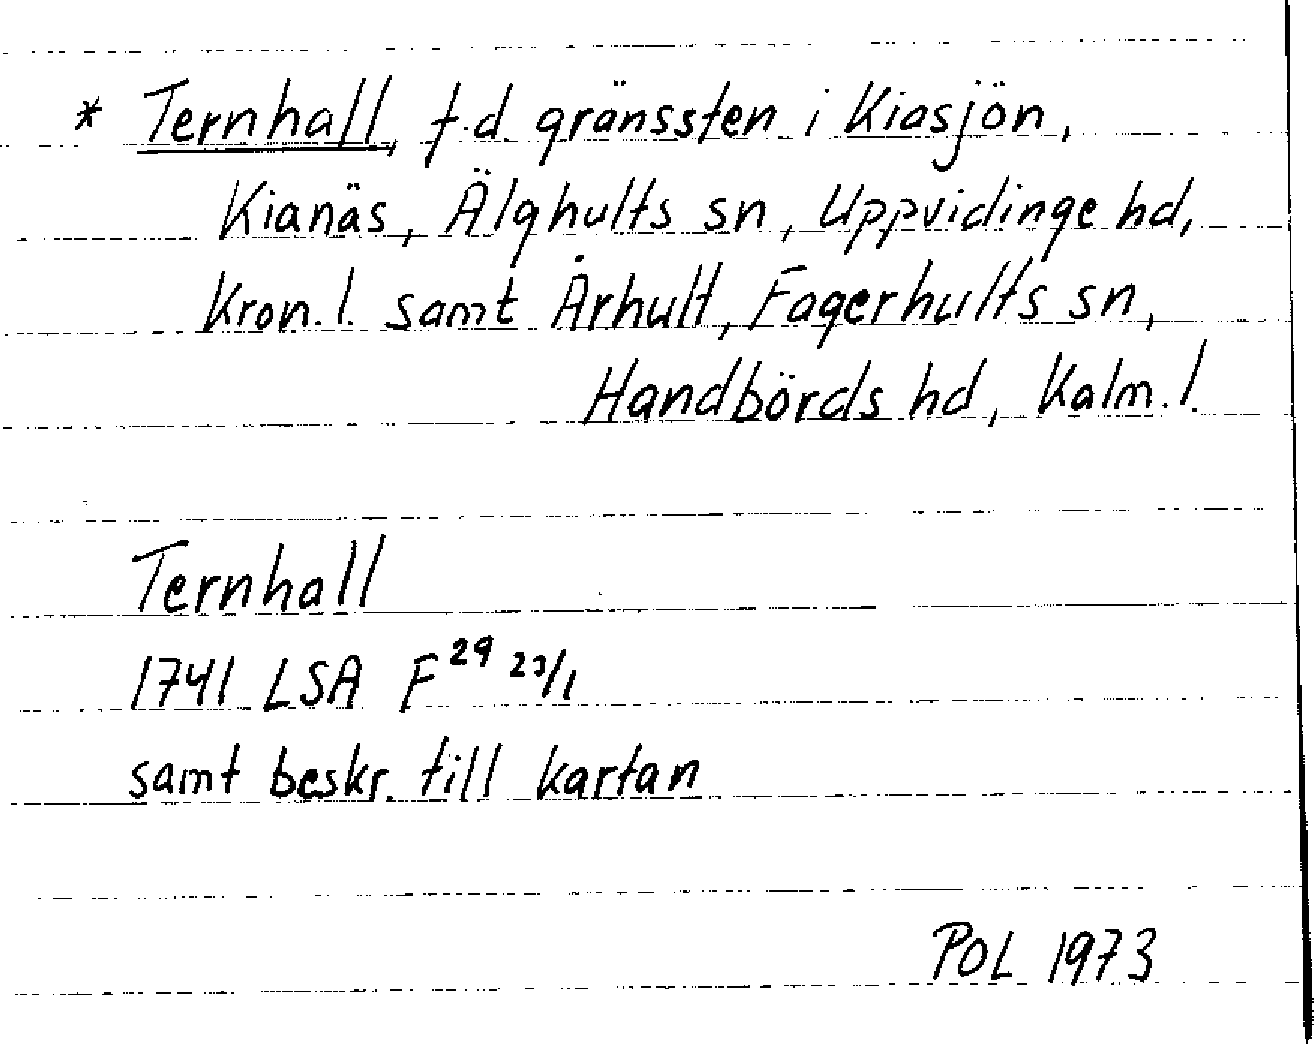 * Ternhall, f.d. gränssten i Kiasjön,
Kianäs, Älghults sn, Uppvidinge hd,
Kron. l. samt Århult, Fagerhults sn,
Handbörds hd, Kalm. l.
Ternhall
1741 LSA F 29 23/1
samt beskr. till kartan
POL 1973